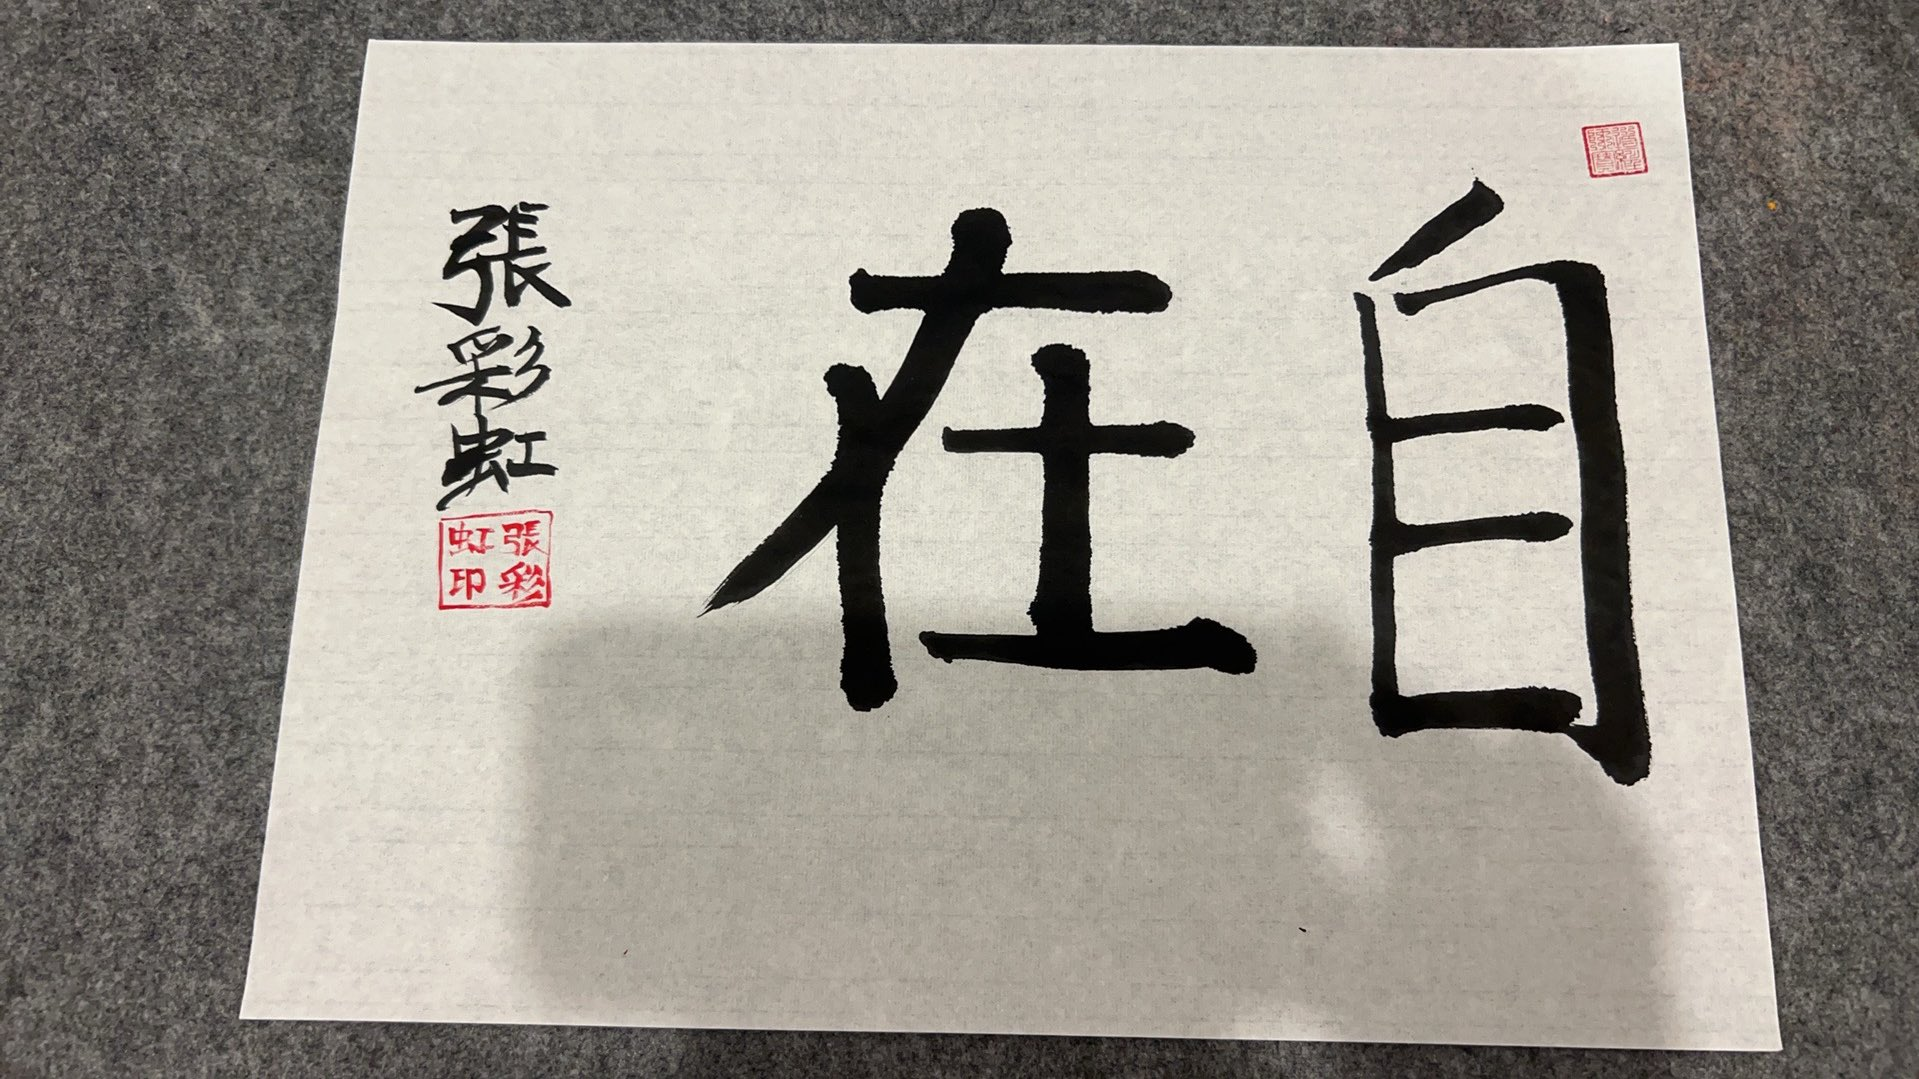 自在
張彩虹
張彩
虹印